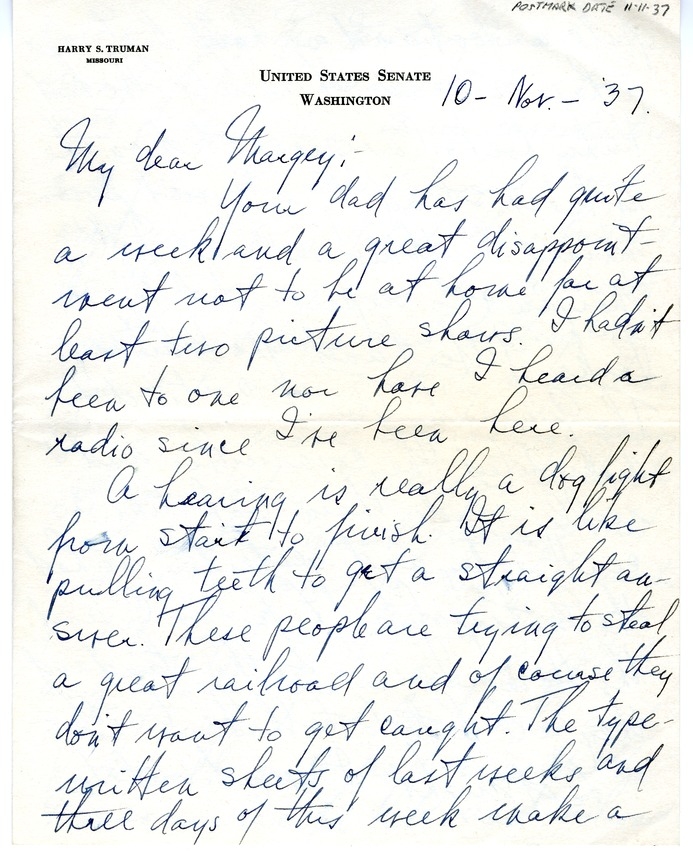 POSTMARK DATE 11-11-37
HARRY S. TRUMAN
MISSOURI
UNITED STATES SENATE
WASHINGTON
10- Nov. - '37.
My dear Margey:-
Your dad has had quite
a week and a great disappoint-
ment not to be at home for at
least two picture shows. I hadn't
been to one nor have I heard a
radio since I've been here.
A hearing is really a dog fight
from start to finish. It is like
pulling teeth to get a straight an-
swer. These people are trying to steal
a great railroad and of course they
don't want to get caught. The type-
written sheets of last weeks and
three days of this week make a